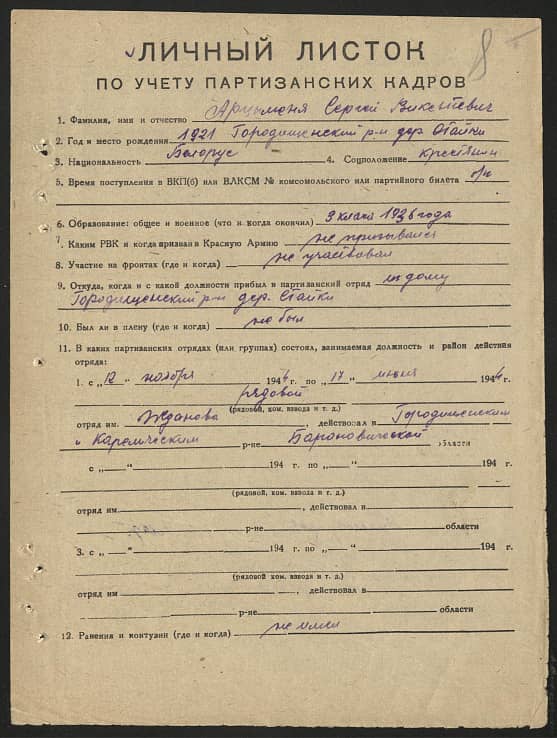 8
ЛИЧНЫЙ ЛИСТОК
ПО УЧЕТУ ПАРТИЗАНСКИХ КАДРОВ
1. Фамилия, имя и отчество Арцыменя Сергей Викентевич
2. Год и место рождения 1921 Городищенский р-н дер. Стайки
3. Национальность Белорус 4. Соцположение Крестянин
5. Время поступления в ВКП(б) или ВЛКСМ № комсомольского или партийного билета б/п
6. Образование: общее и военное (что и когда окончил) 9 класс 1936 года
7. Каким РВК и когда призван в Красную Армию не призывался
8. Участие на фронтах (где и когда) не участвовал
9. Откуда, когда и с какой должности прибыл в партизанский отряд из дому
Городищенский р-н дер. Стайки
10. Был ли в плену (где и когда) не был
11. В каких партизанских отрядах (или группах) состоял, занимаемая должность и район действия
отряда:
1. с „12“ ноября 194 г. по „17“ июля 1944 г.
рядовой
(рядовой, ком. взвода и т. д.)
отряд им. Жданова, действовал в Городищенским
и Кареличским р-не Барановической области
с „ “ 194 г. по „ “ 194 г.
(рядовой, ком. взвода и т. д.)
отряд им. , действовал в
р-не области
3. с „ “ 194 г. по „ “ 194 г.
(рядовой, ком. взвода и т. д.)
отряд им. , действовал в
р-не области
12. Ранения и контузии (где и когда) не имел